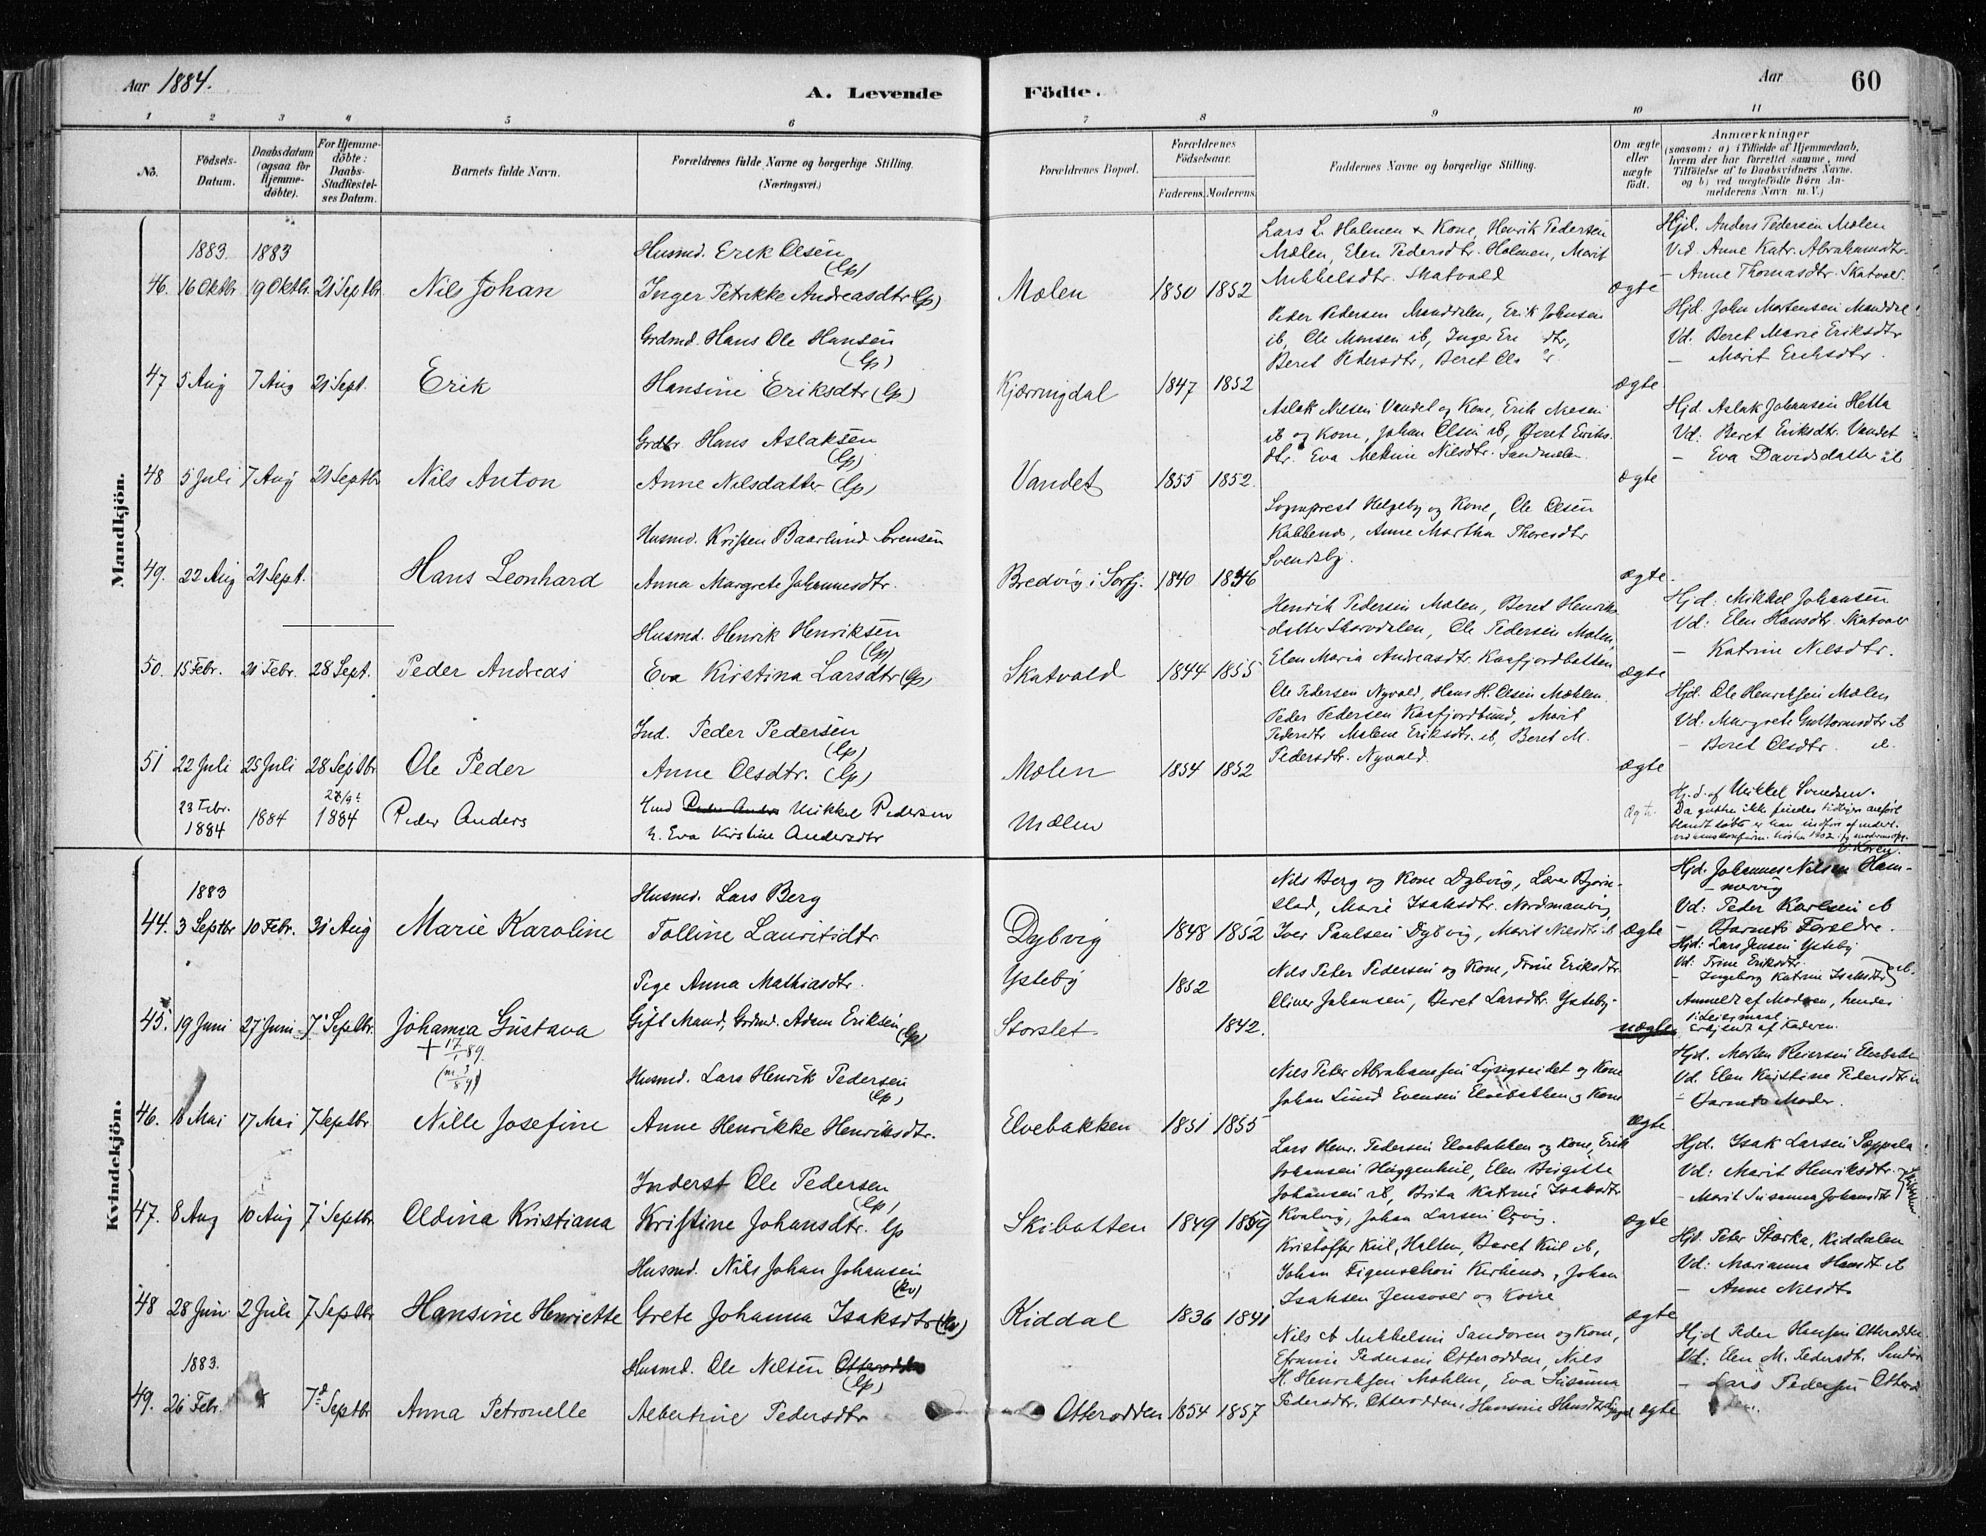 Aar 1884.
A. Levende Födte.
Aar
60
1 2 3 4 5 6 7 8 9 10 11
No.
Födsels-Datum.
Daabsdatum (ogsaa for Hjemme-döbte).
For Hjemme-döbte: Daabs-Stadfæstel-ses Datum.
Barnets fulde Navn.
Forældrenes fulde Navne og borgerlige Stilling. (Næringsvei.)
Forældrenes Bopæl.
Forældrenes Födselsaar.
Faderens. Moderens.
Faddernes Navne og borgerlige Stilling.
Om ægte eller uægte födt.
Anmærkninger
(saasom: a) i Tilfælde af Hjemmedaab, hvem der har forrettet samme, med Tilföielse af to Daabsvidners Navne, og b) ved uægtefödte Börn An-melderens Navn m. V.)
Mandkjön.
1883. 1883
46. 16 Oktbr 19 Oktbr. 21 Septbr. Nils Johan
Husmd. Erik Olsen (lp)
Inger Petrikke Andreasdtr (lp)
Mælen 1850 1852
Lars L. Holmen & Kone, Henrik Pedersen
Mælen, Elen Pedersdtr. Holmen, Marit
Mikkelsdtr. Skatvold
ægte
Hjd. Anders Pedersen Mælen
Vid. Anne Katr. Abrahamsdtr.
- Anne Thomasdtr. Skatvold
47 5 Aug 7 Aug 21 Sept. Erik
Grdmd. Hans Ole Hansen (lp)
Hansine Eriksdtr (lp)
Kjærringdal 1847 1852
Peder Pedersen Manddalen, Erik Johnsen
ib, Ole Monsen ib, Inger
Beret Pedersdtr, Beret
ægte
Hjd. John Mortensen Manddal
Vd. Beret Marie Eriksdtr
- Marit Eriksdtr.
48 5 Juli 7 Aug 21 Septbr Nils Anton
Grdbr. Hans Aslaksen (lp)
Anne Nilsdatter (lp)
Vandet 1855 1852
Aslak Nilsen Vandet og Kone, Erik Nilsen
ib og Kone, Johan Olsen ib, Beret Eriks-
dtr. Eva Nilsdtr. Sandmælen.
ægte
Hjd. Aslak Johansen Hetta
Vd: Beret Eriksdtr. Vandet
- Eva Davidsdatter ib
49. 22 Aug 21 Sept. Hans Leonhard
Husmd. Krissen Baarlund Sørensen
Anna Margrete Johannesdtr.
Bredvig i Sorfj. 1840 1846
Sogneprest Helgeby og Kone, Ole Olsen
Kabbenes, Anne Martha Thoresdtr
Svendsby.
ægte.
50. 15 Febr. 21 Febr. 28 Sept. Peder Andreas
Husmd. Henrik Henriksen (lp)
Eva Kirstina Larsdtr (lp)
Skatvold 1844 1855
Henrik Pedersen Mælen, Beret Henriks-
datter Skarvdalen, Ole Pedersen Mælen,
Elen Maria Andreasdtr. Kaafjordbotten
ægte
Hjd: Mikkel Johansen
Vd: Elen Hansdtr. Skatvold
- Katrine Nilsdtr.
51 22 Juli 25 Juli 28 Septbr Ole Peder
Ind. Peder Pedersen (lp)
Anne Olsdtr. (lp)
Mælen 1854 1852
Ole Pedersen Nyvold, Hans H. Olsen Mæhlen
Peder Pedersen Kaafjordbund, Marit
Pedersdtr Malene Eriksdtr. ib, Beret M.
Pedersdtr. Nyvold.
ægte
Hjd. Ole Henriksen Mælen
Vd. Margrete Guttormsdtr ib
- Beret Olsdtr. ib.
23 Febr. 1884 1884 1884 Peder Anders
Mikkel Pedersen
h. Eva Kirstine Andersdtr
Mælen
Ægt.
Hj. d. af Mikkel Svendsen.
Kvindekjön.
1883
44. 3 Septbr 10 Febr. 31 Aug Marie Karoline
Husmd. Lars Berg
Tolline Lauritsdtr
Dybvig 1848 1852
Nils Berg og Kone Dybvig, Lars Bjørn-
stad, Marie Isaksdtr. Nordmanvig,
Iver Paulsen Dybvig, Marit Nilsdtr ib
ægte
Hjd. Johannes Nilsen Olam-
nævig
Vd: Peder Karlsen ib
- Barnets Forældre.
45. 19 Juni 27 Juni 7 Septbr. Johanna Gustava
+ 17/1 89.
Pige Anna Mathiasdtr.
Gift Mand, Grdmd. Adam Eriksen (lp)
Ysteby 1852
Storslet 1842.
Nils Peter Pedersen og Kone, Trine Eriksdtr.
Oliver Johansen, Beret Larsdtr. Ysteby
uægte
Hjd: Lars Jensen Ysteby
Vd: Trine Eriksdtr.
- Ingeborg Katrine Isaksdtr ib.
Anmeldt af Moderen, hendes
1. Leiermaal.
Erkjendt af Faderen.
46. 10 Mai 17 Mai 7 Septbr Nille Josefine
Husmd. Lars Henrik Pedersen (lp)
Anne Henrikke Henriksdtr.
Elvebakken 1851 1855
Nils Peter Abrahamsen Lyngseidet og Kone
Johan Lund Evensen Elvebakken og Kone
ægte
Hjd. Morten Reiersen Elvebakken
Vd. Elen Kirstine Pedersdtr ib
- Barnets Moder.
47. 8 Aug 10 Aug 7 Septbr Oldina Kristiana
Inderst Ole Pedersen (lp)
Kristine Johansdtr. lp
Skibotten 1849 1859
Lars Henr. Pedersen Elvebakken og Kone, Erik
Johansen Huggenkiil, Elen Birgitte
Johansen ib, Brita Katrine Isaksdtr
Kvalvig, Johan Larsen
ægte
Hjd. Isak Larsen Seppala
Vd: Marit Henriksdtr.
- Marit Susanna Johansdtr
48 28 Juni 2 Juli 7 Septbr Hansine Henriette
Husmd. Nils Johan Johansen (kv)
Grete Johanna Isaksdtr (kv)
Kiddal 1836 1841
Kristoffer Kiil, Halten, Beret Kiil ib,
Johan Figenschou Kirkenes, Johan
Isaksen Jensvold og Kone
ægte
Hjd. Peter Stærka, Kiddalen
Vd: Marianna Hansdt ib
- Anne Nilsdt
1883.
49. 26 Febr. 7 Septbr Anna Petronelle
Husmd. Ole Nilsen Otterodden (lp)
Albertine Pedersdtr
Otterodden 1854 1857
Nils A Mikkelsen Sandøren og Kone,
Efraim Pedersen Otterodden, Nils
H. Henriksen Mæhlen, Eva Susanna
Pedersdtr. Otterodden, Hansine Hansdtr
ægte
Hjd Peder Hansen Otterodden
Vd: Elen M. Pedersdtr.
- Lars Pedersen